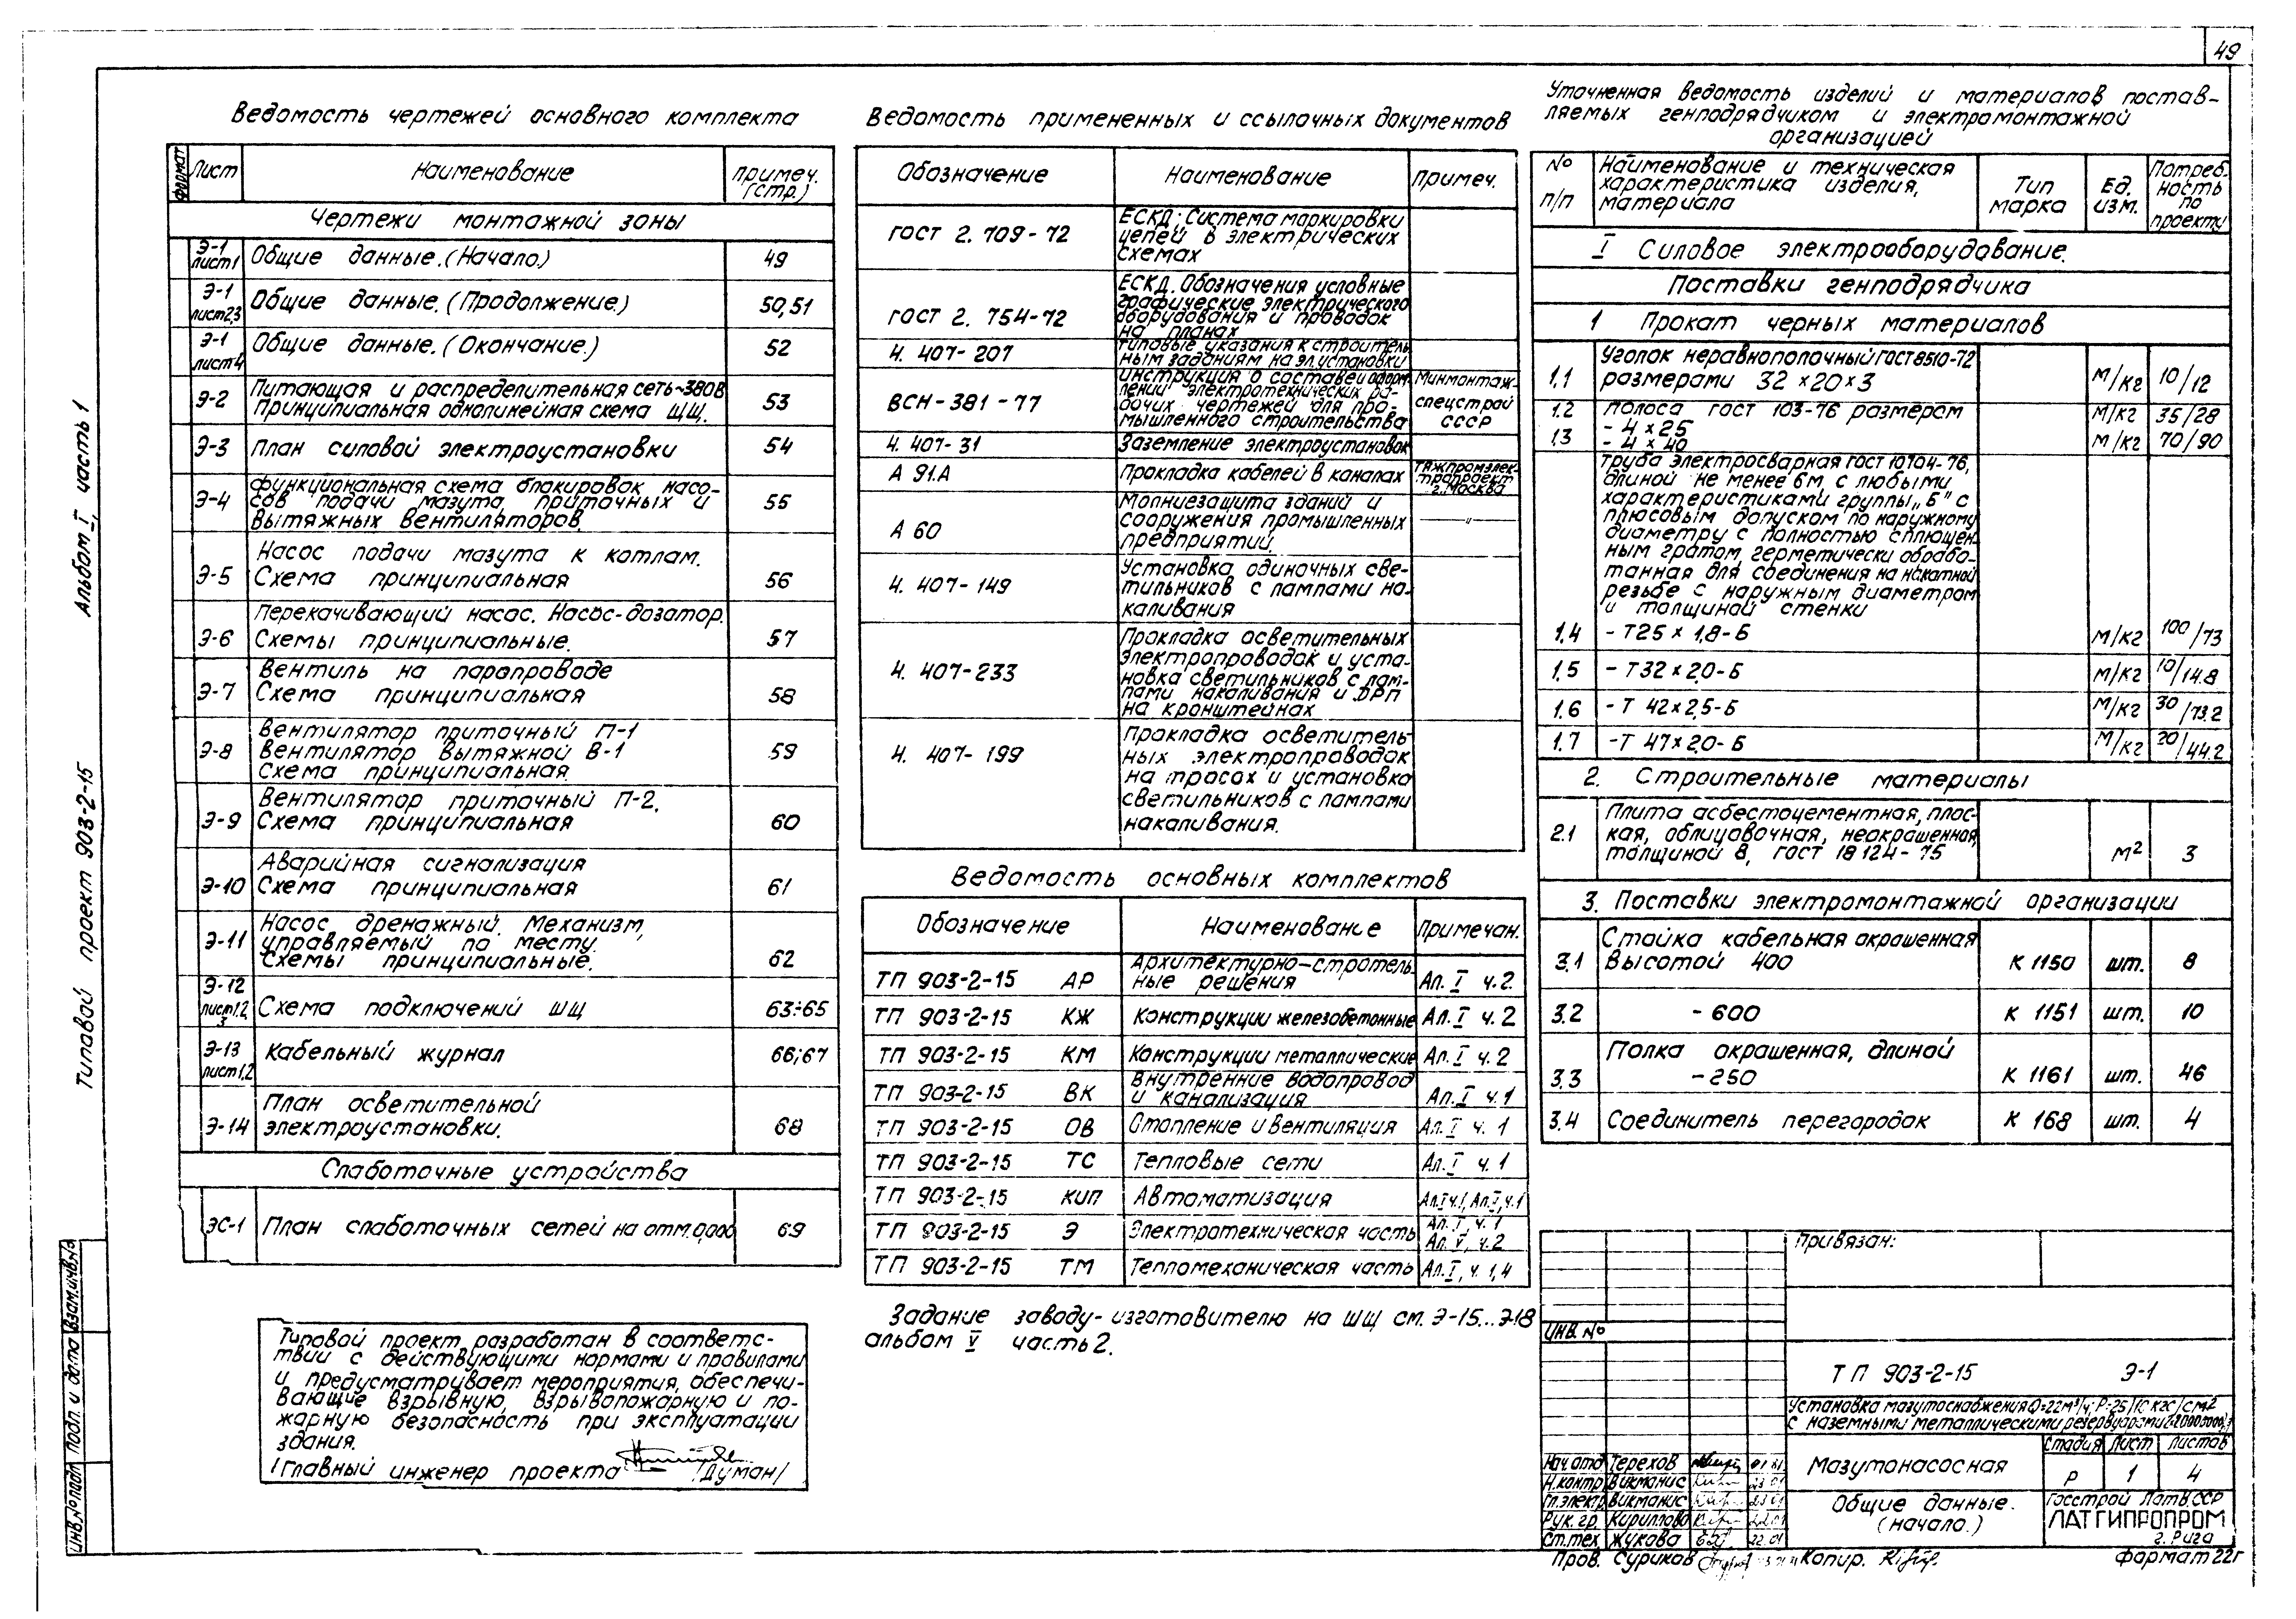 49
Ведомость чертежей основного комплекта
Формат Лист Наименование Примеч. (стр.)
Чертежи монтажной зоны
Э-1 лист1 Общие данные. (Начало.) 49
Э-1 лист2,3 Общие данные. (Продолжение.) 50,51
Э-1 лист4 Общие данные. (Окончание.) 52
Э-2 Питающая и распределительная сеть ~380В
Принципиальная однолинейная схема ЩЩ. 53
Э-3 План силовой электроустановки 54
Э-4 Функциональная схема блокировок насо-
сов подачи мазута, приточных и
вытяжных вентиляторов. 55
Э-5 Насос подачи мазута к котлам.
Схема принципиальная 56
Э-6 Перекачивающий насос. Насос-дозатор.
Схемы принципиальные. 57
Э-7 Вентиль на паропроводе
Схема принципиальная 58
Э-8 Вентилятор приточный П-1
Вентилятор вытяжной В-1
Схема принципиальная 59
Э-9 Вентилятор приточный П-2.
Схема принципиальная 60
Э-10 Аварийная сигнализация
Схема принципиальная 61
Э-11 Насос дренажный. Механизм,
управляемый по месту.
Схемы принципиальные. 62
Э-12 лист1,2,3 Схема подключений ЩЩ 63÷65
Э-13 лист1,2 Кабельный журнал 66;67
Э-14 План осветительной
электроустановки. 68
Слаботочные устройства
ЭС-1 План слаботочных сетей на отм.0,000 69
Типовой проект разработан в соответс-
твии с действующими нормами и правилами
и предусматривает мероприятия, обеспечи-
вающие взрывную, взрывопожарную и по-
жарную безопасность при эксплуатации
здания.
/Главный инженер проекта /Думан/
Ведомость примененных и ссылочных документов
Обозначение Наименование Примеч.
ГОСТ 2.709-72 ЕСКД; Система маркировки
цепей в электрических
схемах
ГОСТ 2.754-72 ЕСКД. Обозначения условные
графические электрического
оборудования и проводок
на планах
4.407-207 Типовые указания к строитель-
ным заданиям на эл.установки
ВСН-381-77 Инструкция о составе и оформ-
лении электротехнических ра-
бочих чертежей для про-
мышленного строительства Минмонтаж-
спецстрой
СССР
4.407-31 Заземление электроустановок
А 91.А Прокладка кабелей в каналах Тяжпромэлек-
тропроект
г.Москва
А 60 Молниезащита зданий и
сооружения промышленных
предприятий. —"—
4.407-149 Установка одиночных све-
тильников с лампами на-
каливания
4.407-233 Прокладка осветительных
электропроводок и уста-
новка светильников с лам-
пами накаливания и ДРЛ
на кронштейнах
4.407-199 Прокладка осветитель-
ных электропроводок
на тросах и установка
светильников с лампами
накаливания.
Ведомость основных комплектов
Обозначение Наименование Примечан.
ТП 903-2-15 АР Архитектурно-строитель-
ные решения Ал. I ч.2
ТП 903-2-15 КЖ Конструкции железобетонные Ал. I ч.2
ТП 903-2-15 КМ Конструкции металлические Ал. I ч.2
ТП 903-2-15 ВК Внутренние водопровод
и канализация Ал. I ч.1
ТП 903-2-15 ОВ Отопление и вентиляция Ал. I ч.1
ТП 903-2-15 ТС Тепловые сети Ал. I ч.1
ТП 903-2-15 КИП Автоматизация
ТП 903-2-15 Э Электротехническая часть Ал. I, ч.1
Ал. V, ч.2
ТП 903-2-15 ТМ Тепломеханическая часть Ал. I, ч.1,4
Задание заводу-изготовителю на ЩЩ см. Э-15...Э-18
альбом V часть 2.
Уточненная ведомость изделий и материалов постав-
ляемых генподрядчиком и электромонтажной
организацией
№ п/п Наименование и техническая
характеристика изделия,
материала Тип марка Ед. изм. Потреб-
ность по проекту
I Силовое электрооборудование.
Поставки генподрядчика
1 Прокат черных материалов
1.1 Уголок неравнополочный ГОСТ 8510-72
размерами 32×20×3 м/кг 10/12
Полоса ГОСТ 103-76 размером
1.2 - 4×25 м/кг 35/28
1.3 - 4×40 м/кг 70/90
Труба электросварная ГОСТ 10704-76,
длиной не менее 6м, с любыми
характеристиками группы „Б" с
плюсовым допуском по наружному
диаметру с полностью сплющен-
ным гратом, герметически обрабо-
танная для соединения на накатной
резьбе с наружным диаметром
и толщиной стенки
1.4 - Т25×1,8-Б м/кг 100/73
1.5 - Т32×2,0-Б м/кг 10/14.8
1.6 - Т 42×2,5-Б м/кг 30/73.2
1.7 - Т 47×2,0-Б м/кг 20/44.2
2. Строительные материалы
2.1 Плита асбестоцементная, плос-
кая, облицовочная, неокрашенная,
толщиной 8, ГОСТ 18124-75 м² 3
3. Поставки электромонтажной организации
3.1 Стойка кабельная окрашенная
высотой 400 К 1150 шт. 8
3.2 - 600 К 1151 шт. 10
3.3 Полка окрашенная, длиной
- 250 К 1161 шт. 46
3.4 Соединитель перегородок К 168 шт. 4
Привязан:
Инв. №
ТП 903-2-15 Э-1
Установка мазутоснабжения Q=22м³/ч; P=25/10 кгс/см²
с наземными металлическими резервуарами
Мазутонасосная
Стадия Лист Листов
Р 1 4
Общие данные.
(начало.)
Госстрой Латв.ССР
ЛАТГИПРОПРОМ
г. Рига
Нач.отд Терехов
Н.контр Викманис
Гл.электр Викманис
Рук.гр. Кириллова
Ст.тех Жукова
Пров. Суриков
Копир.
Формат 22г
Типовой проект 903-2-15 Альбом I, часть 1
Инв.№ подл Подп. и дата Взам.инв.№